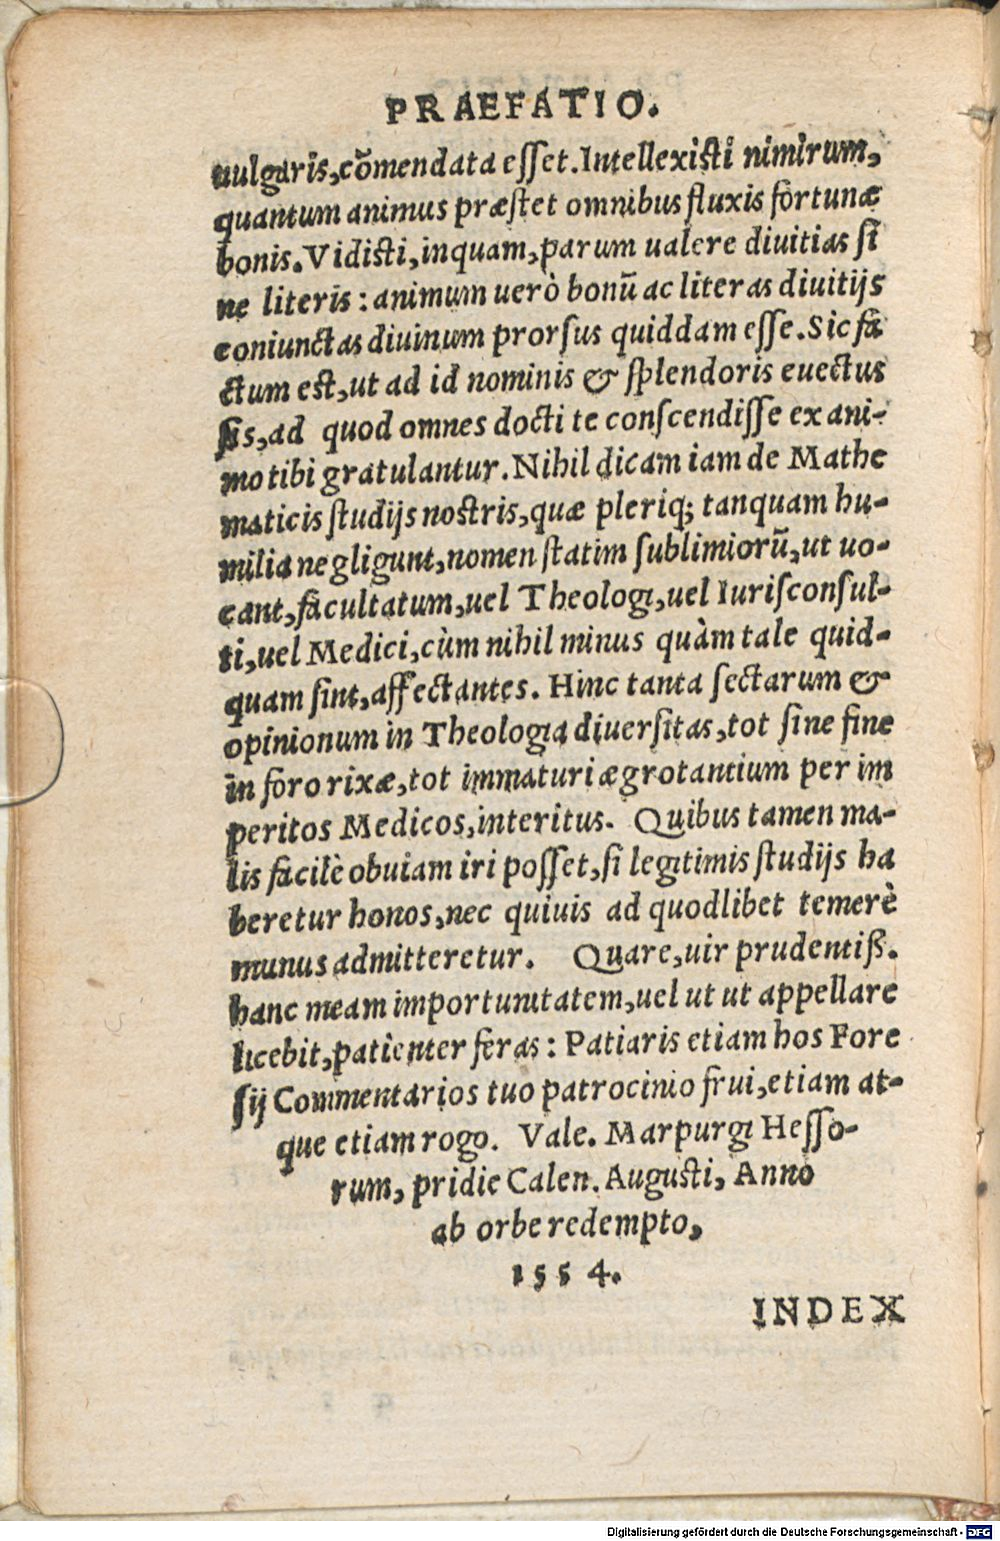 PRAEFATIO.
uulgaris,cõmendata eſſet.Intellexiſti nimirum,
quantum animus præſtet omnibus fluxis fortunæ
bonis.Vidiſti,inquam,parum ualere diuitias ſi
ne literis : animum uerò bonũ ac literas diuitijs
coniunctas diuinum prorſus quiddam eſſe.Sic fa
ctum eſt,ut ad id nominis & ſplendoris euectus
ſis,ad quod omnes docti te conſcendiſſe ex ani-
mo tibi gratulantur.Nihil dicam iam de Mathe
maticis ſtudijs noſtris,quæ pleriq; tanquam hu-
milia negligunt,nomen ſtatim ſublimiorũ,ut uo-
cant,facultatum,uel Theologi,uel Iuriſconſul-
ti,uel Medici,cùm nihil minus quàm tale quid-
quam ſint,affectantes. Hinc tanta ſectarum &
opinionum in Theologia diuerſitas,tot ſine fine
in foro rixæ,tot immaturi ægrotantium per im
peritos Medicos,interitus. Quibus tamen ma-
lis facilè obuiam iri poſſet,ſi legitimis ſtudijs ha
beretur honos,nec quiuis ad quodlibet temerè
munus admitteretur. Quare,uir prudentiß.
hanc meam importunitatem,uel ut ut appellare
licebit,patienter feras : Patiaris etiam hos Fore
ſij Commentarios tuo patrocinio frui,etiam at-
que etiam rogo. Vale. Marpurgi Heſſo-
rum, pridie Calen. Auguſti, Anno
ab orbe redempto,
1554.
INDEX
Digitalisierung gefördert durch die Deutsche Forschungsgemeinschaft - DFG